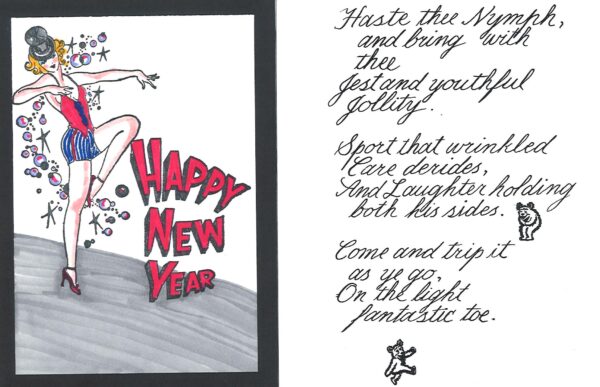 HAPPY
NEW
YEAR
Haste thee Nymph,
and bring with
thee
Jest and youthful
Jollity.
Sport that wrinkled
Care derides,
And Laughter holding
both his sides.
Come and trip it
as ye go,
On the light
fantastic toe.